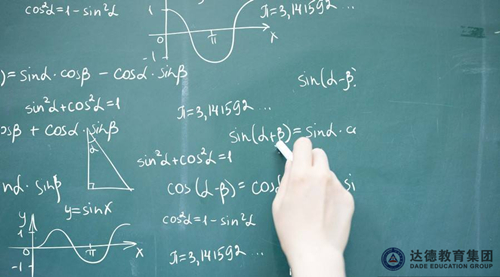 cos²α=1-sin²α
1
-1
π
x
π=3,141592 ..
)=sinα·cosβ-cosα·sinβ
sin(α-β)
sin²α+cos²α=1
π=3,141592 ..
osβ+cosα·sinβ
α
sin(α+β)=sinα·co
sin²α+cos²α=1
nα·sinβ
cos(α-β)=cosα
si
y=sinx
y
1
-1
π
x
cos²α=1-sin²α
π=3,141592 ..
达德教育集团
DADE EDUCATION GROUP